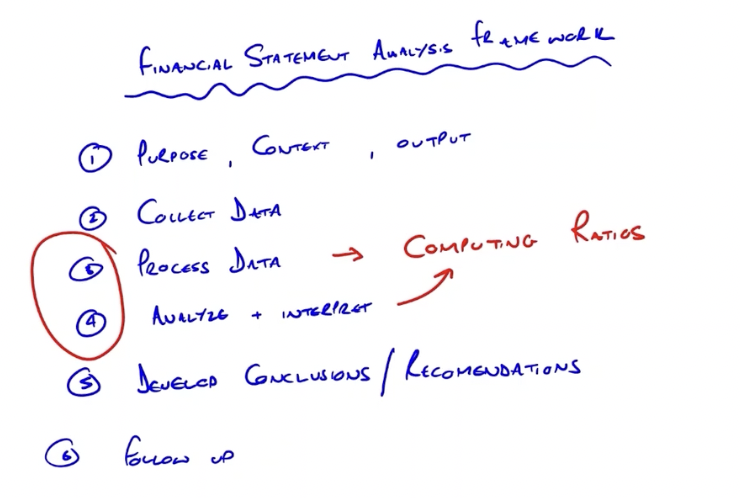 FINANCIAL STATEMENT ANALYSIS FRAMEWORK
① PURPOSE, CONTEXT, OUTPUT
② COLLECT DATA
③ PROCESS DATA → COMPUTING RATIOS
④ ANALYZE + INTERPRET
⑤ DEVELOP CONCLUSIONS / RECOMENDATIONS
⑥ FOLLOW UP